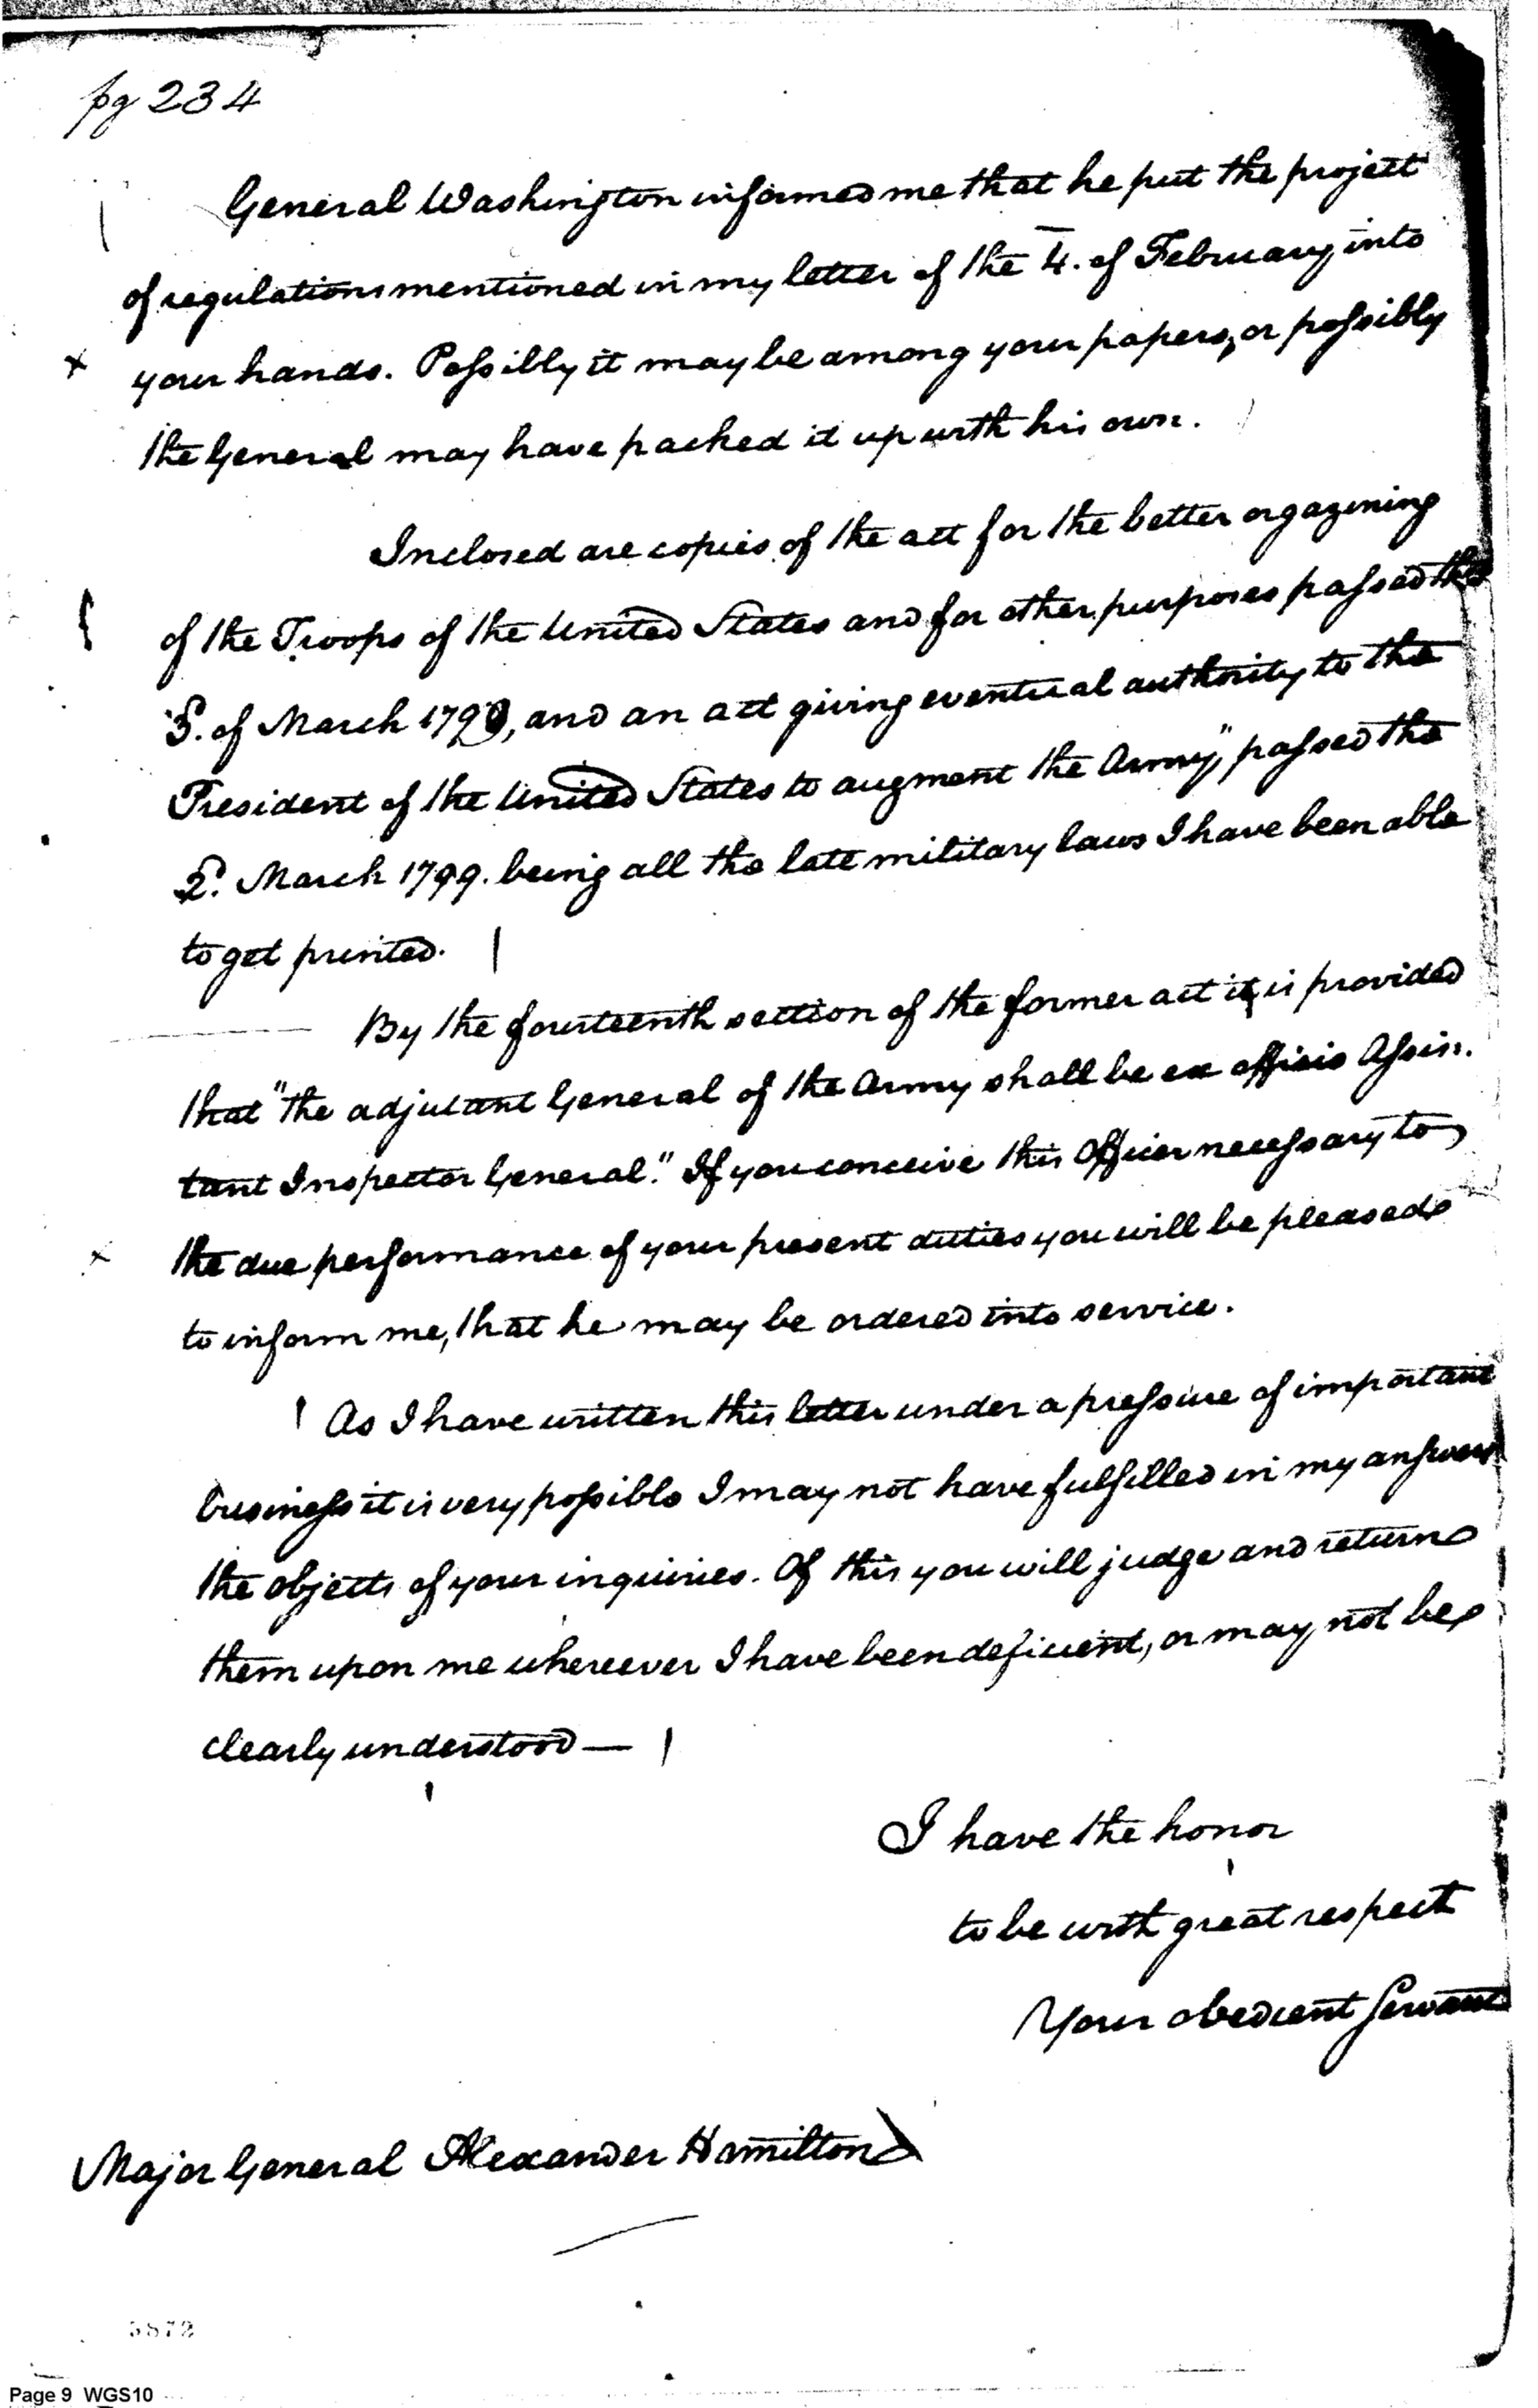 pg 234
General Washington informed me that he put the project
of regulations mentioned in my letter of the 4. of February, into
your hands. Possibly it may be among your papers, or possibly
the General may have packed it up with his own.
Inclosed are copies of the act for the better orgazining
of the Troops of the United States and for other purposes passed the
3. of March 1799, and an act giving eventual authority to the
President of the United States to augment the Army," passed the
2. March 1799. being all the late military laws I have been able
to get printed.
By the fourteenth section of the former act it is provided
that "the adjutant General of the Army shall be ex officio Assis.
tant Inspector General." If you conceive this Officer necessary to
the due performance of your present duties you will be pleased
to inform me, that he may be ordered into service.
As I have written this letter under a pressure of important
business it is very possible I may not have fulfilled in my answers
the objects of your inquiries. Of this you will judge and return
them upon me whereever I have been deficient, or may not be
clearly understood —
I have the honor
to be with great respect
Your obedient Servant
Major General Alexander Hamilton
5872
Page 9 WGS10